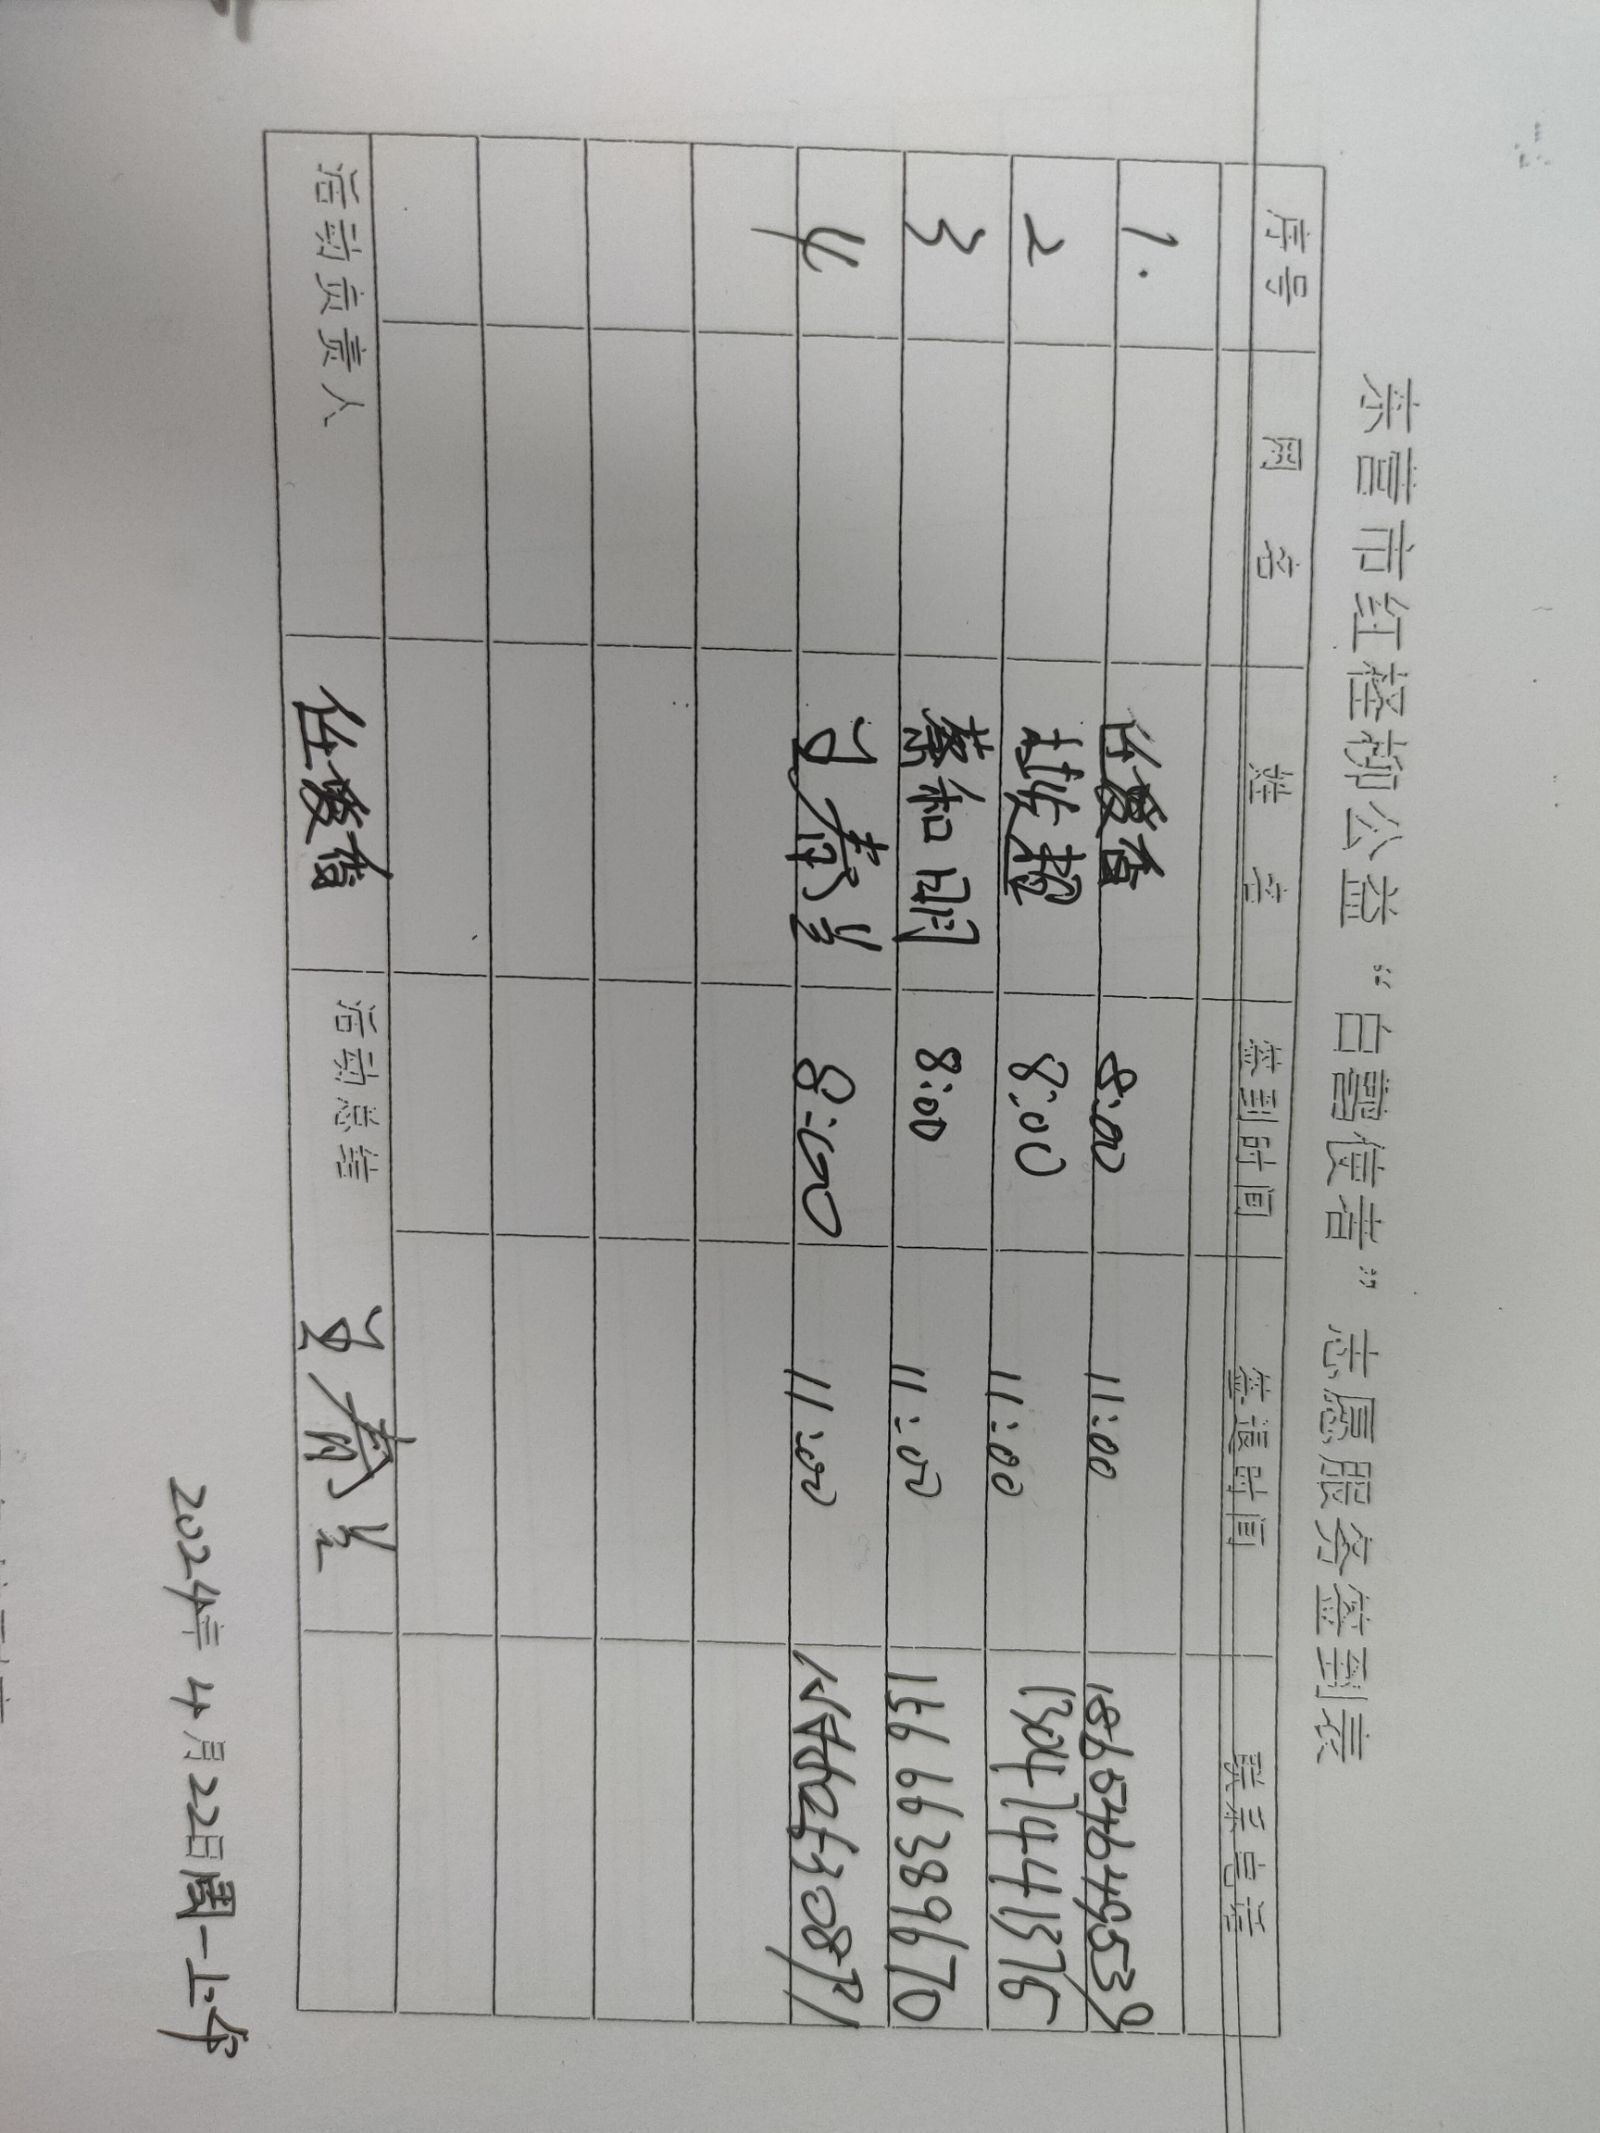 东营市红柽柳公益“白鹭使者”志愿服务签到表
序号 网名 姓名 签到时间 签退时间 联系电话
1. 任爱香 8:00 11:00
2 赵焕超 8:00 11:00 13047441376
3 綦知润 8:00 11:00 15666389670
4 8:00 11:00
活动负责人 任爱香 活动总结
2024年4月22日周一上午